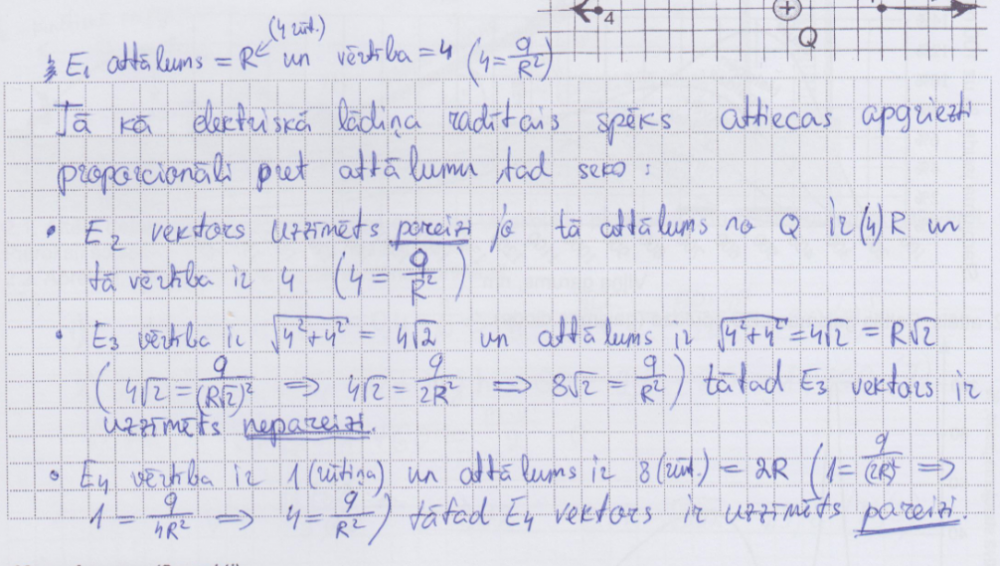 4
Q
(4 rūt.)
E₁ attālums = R un vērtība = 4 (4 = q/R²)
Tā kā elektriskā lādiņa radītais spēks attiecas apgriezti
proporcionāli pret attālumu tad seko:
• E₂ vektors uzzīmēts pareizi jo tā attālums no Q ir (4)R un
tā vērtība ir 4 (4 = q/R²)
• E₃ vērtība ir √(4²+4²) = 4√2 un attālums ir √(4²+4²) = 4√2 = R√2
(4√2 = q/(R√2)² ⇒ 4√2 = q/2R² ⇒ 8√2 = q/R²) tātad E₃ vektors ir
uzzīmēts nepareizi.
• E₄ vērtība ir 1 (rūtiņa) un attālums ir 8 (rūt.) = 2R (1 = q/(2R)² ⇒
1 = q/4R² ⇒ 4 = q/R²) tātad E₄ vektors ir uzzīmēts pareizi.